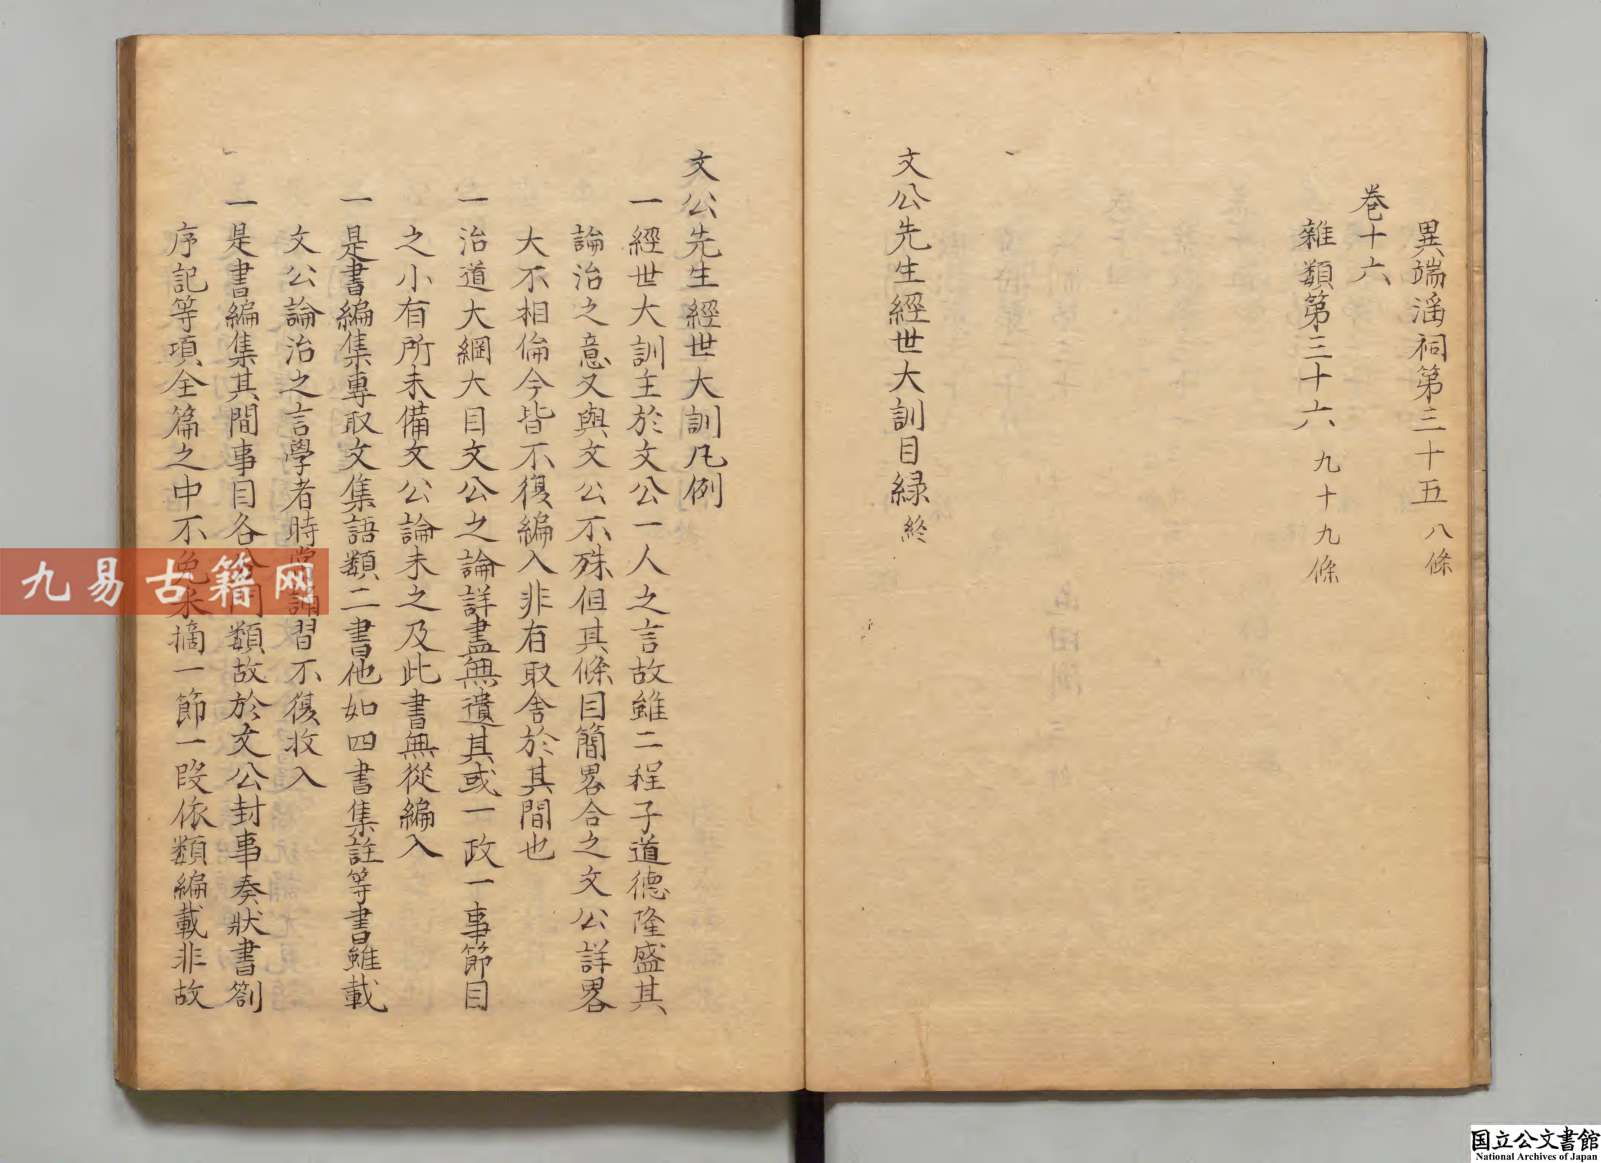 異端淫祠第三十五 八條
卷十六
雜類第三十六 九十九條
文公先生經世大訓目録 終
文公先生經世大訓凡例
一經世大訓主於文公一人之言故雖二程子道德隆盛其
論治之意又與文公不殊但其條目簡畧合之文公詳畧
大不相倫今皆不復編入非有取舍於其間也
一治道大綱大目文公之論詳盡無遺其或一政一事節目
之小有所未備文公論未之及此書無從編入
一是書編集專取文集語類二書他如四書集註等書雖載
文公論治之言學者時常誦習不復收入
一是書編集其間事目各分門類故於文公封事奏狀書劄
序記等項全篇之中不免采摘一節一段依類編載非故
九易古籍网
国立公文書館
National Archives of Japan